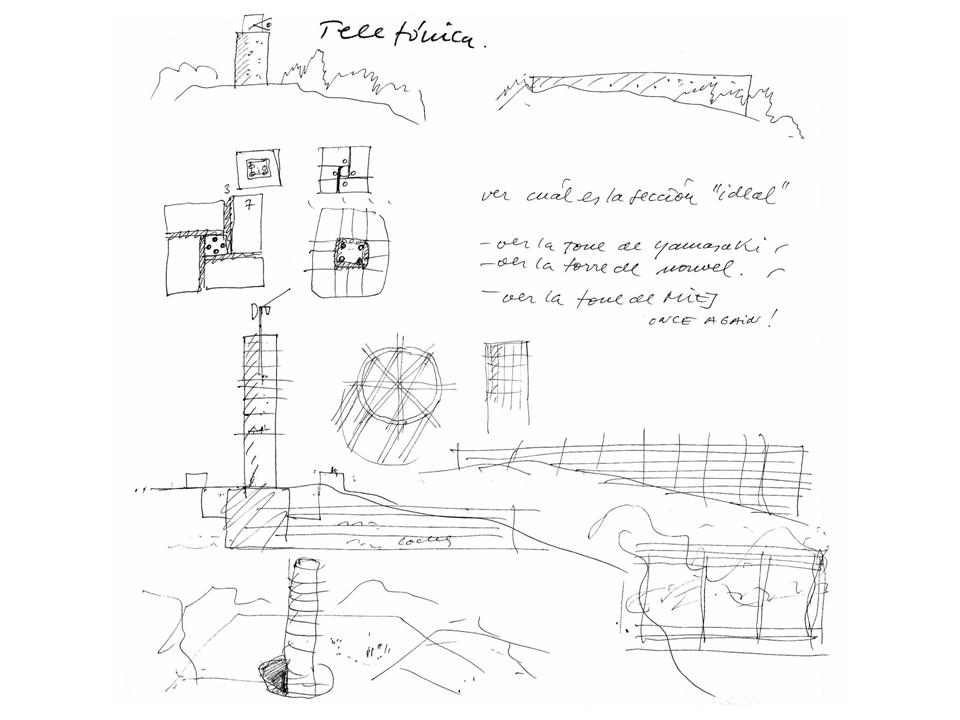 Telefónica.
ver cuál es la sección "ideal"
3
7
- ver la torre de yamasaki
- ver la torre de nouvel.
- ver la torre de MIES
ONCE AGAIN!
coches